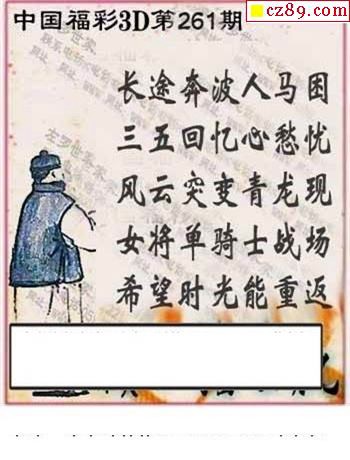 中国福彩3D第261期
cz89.com
长途奔波人马困
三五回忆心愁忧
风云突变青龙现
女将单骑士战场
希望时光能重返